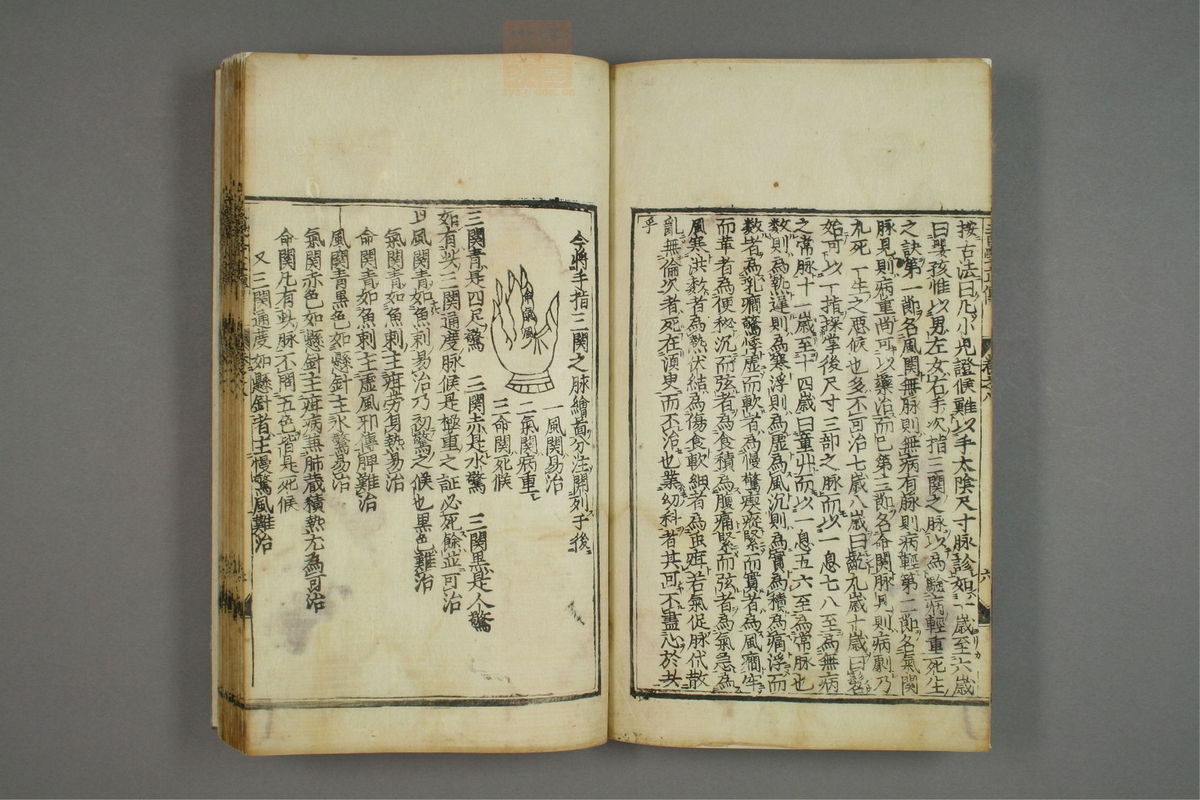 按古法曰凡小児證候難以手太陰尺寸脉診如一歳至六歳
曰嬰孩惟以男左女右手次指三関之脉以為驗病輕重死生
之訣第一節名風関無脉則無病有脉則病輕第二節名氣関
脉見則病重尚可以藥治而已第三節名命関脉見則病劇乃
九死一生之惡候也多不可治七歳八歳曰齔九歳十歳曰髫
始可以一指探掌後尺寸三部之脉而以一息七八至為無病
之常脉十一歳至十四歳曰童丱而以一息五六至為常脉也
数則為熱遅則為寒浮則為虚為風沉則為實為積為痛浮而
数者為乳癇驚悸虚而軟者為慢驚瘈瘲緊而實者為風癇牢
而革者為便秘沉而弦者為食積為腹痛緊而弦者為氣急為
風寒洪数者為熱伏結為傷食軟細者為虫疳若氣促脉代散
亂無倫次者死在須臾而不治也業幼科者其可不盡心於共
乎
今將手指三関之脉繪啚分注開列于後
命氣風
一風関易治
二氣関病重
三命関死候
三関青是四足驚　三関赤是水驚　三関黒是人驚
如有此三関通度脉候是極重之証必死餘並可治
風関青如魚刺易治乃初驚之候也黒色難治
氣関青如魚刺主疳劳身熱易治
命関青如魚刺主虚風邪傳脾難治
風関青黒色如懸針主水驚易治
氣関赤色如懸針主疳病兼肺蔵積熱尤為可治
命関凡有此脉不問五色皆是死候
又三関通度如懸針者主慢驚風難治